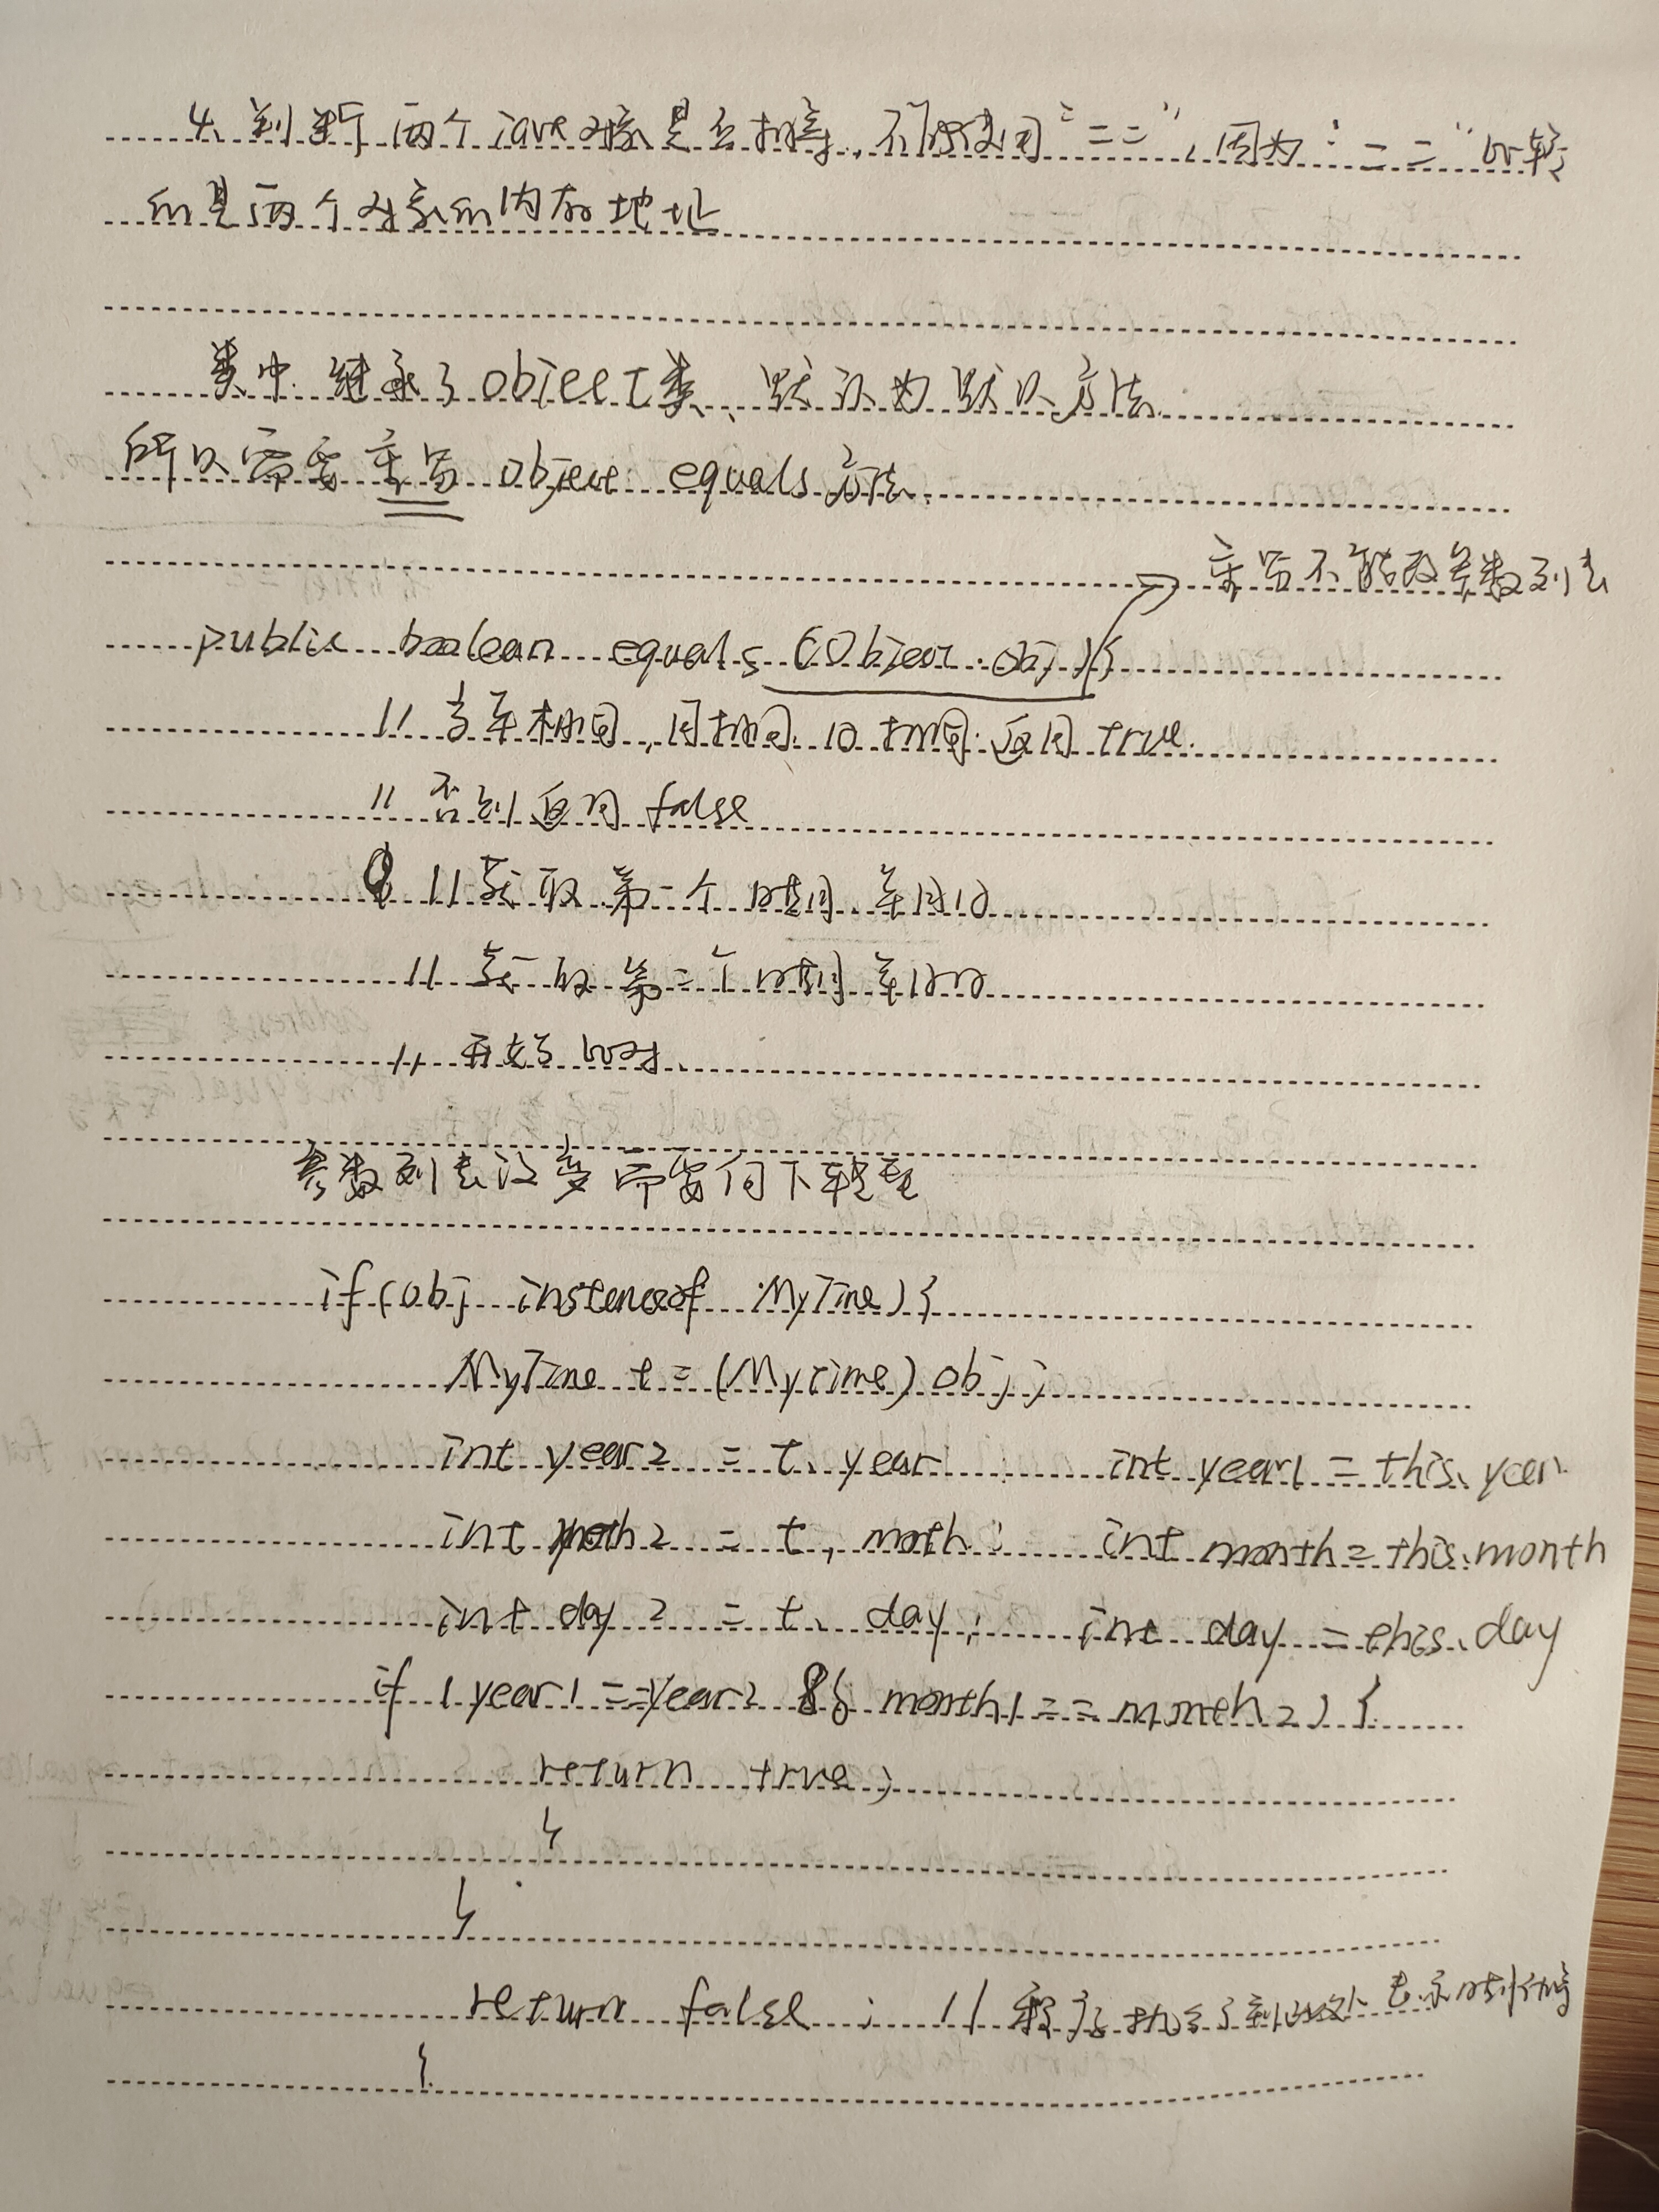 4、判断两个java对象是否相等，不能使用"==", 因为"=="比较
的是两个对象的内存地址
类中继承了Object类、默认为默认方法
所以需要重写 Object equals方法.
重写不能改参数列表
public boolean equals (Object obj){
// 当年相同，月相同. 日相同. 返回 true.
// 否则返回 false
// 获取第一个时间、年月日
// 获取第二个时间年月日
// 开始比对、
参数列表没变需要向下转型
if (obj instanceof MyTime) {
MyTime t = (MyTime) obj;
int year2 = t. year int year1 = this. year
int month2 = t. month; int month = this.month
int day2 = t. day; int day = this. day
if ( year1 == year2 && month1 == month2 ) {
return true;
}
}
return false ; // 程序执行到此处表示时间
}